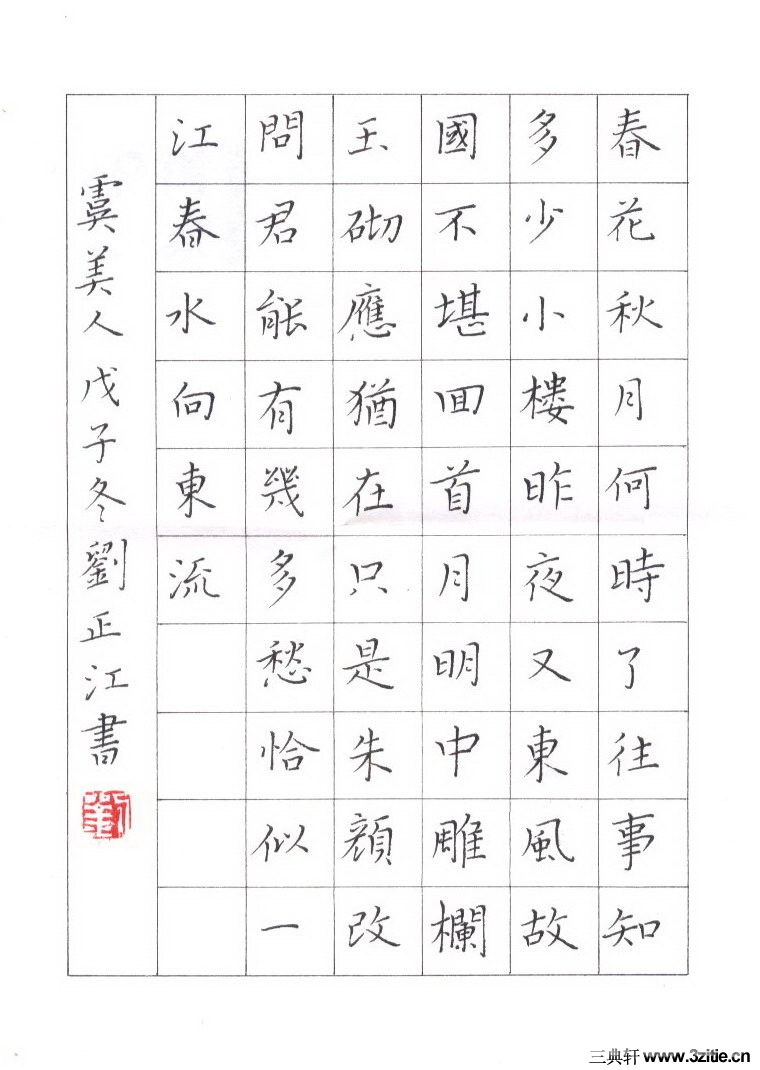 春花秋月何時了往事知
多少小樓昨夜又東風故
國不堪回首月明中雕欄
玉砌應猶在只是朱顏改
問君能有幾多愁恰似一
江春水向東流
虞美人戊子冬劉正江書
劉
三典轩 www.3zitie.cn